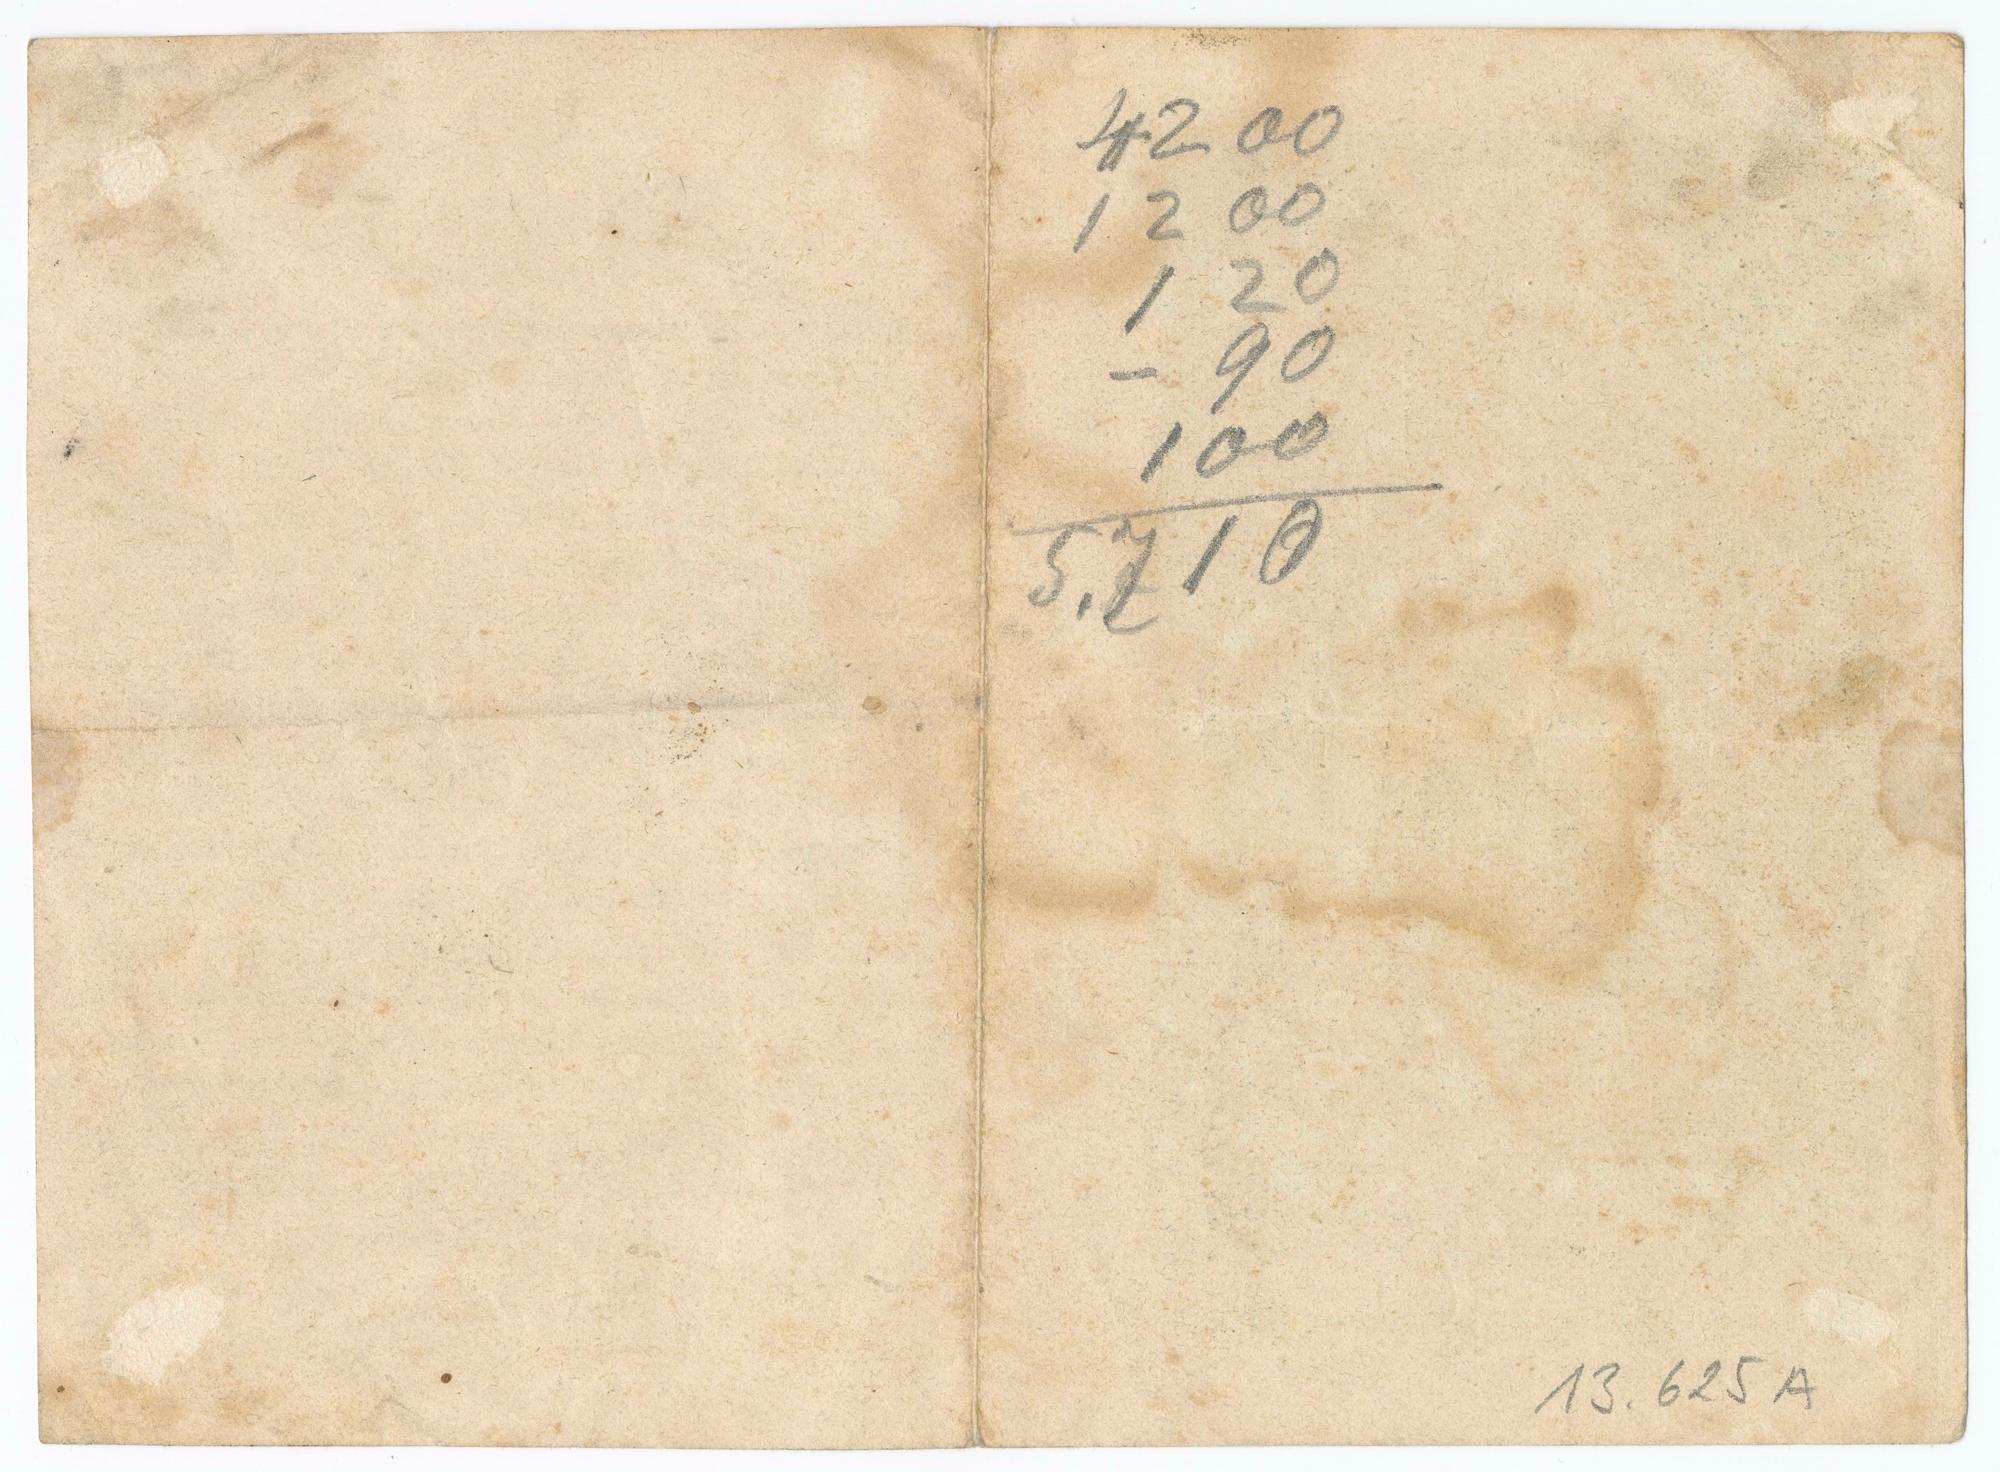 4200
1200
120
- 90
100
5.710
13.625 A